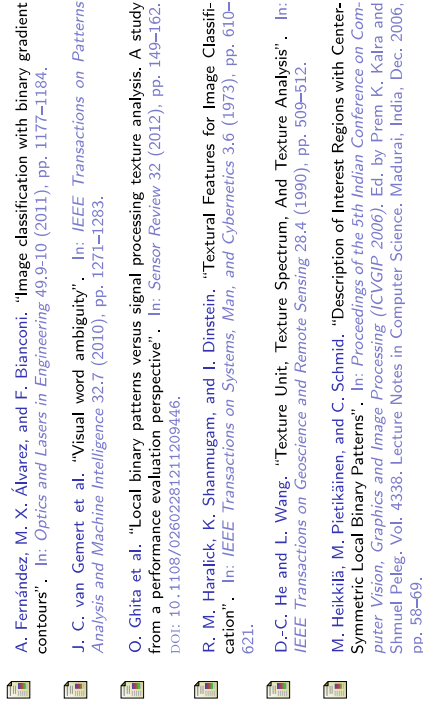 A. Fernández, M. X. Álvarez, and F. Bianconi. “Image classification with binary gradient
contours”. In: Optics and Lasers in Engineering 49.9-10 (2011), pp. 1177–1184.
J. C. van Gemert et al. “Visual word ambiguity”. In: IEEE Transactions on Patterns
Analysis and Machine Intelligence 32.7 (2010), pp. 1271–1283.
O. Ghita et al. “Local binary patterns versus signal processing texture analysis. A study
from a performance evaluation perspective”. In: Sensor Review 32 (2012), pp. 149–162.
DOI: 10.1108/02602281211209446.
R. M. Haralick, K. Shanmugam, and I. Dinstein. “Textural Features for Image Classifi-
cation”. In: IEEE Transactions on Systems, Man, and Cybernetics 3.6 (1973), pp. 610–
621.
D.-C. He and L. Wang. “Texture Unit, Texture Spectrum, And Texture Analysis”. In:
IEEE Transactions on Geoscience and Remote Sensing 28.4 (1990), pp. 509–512.
M. Heikkilä, M. Pietikäinen, and C. Schmid. “Description of Interest Regions with Center-
Symmetric Local Binary Patterns”. In: Proceedings of the 5th Indian Conference on Com-
puter Vision, Graphics and Image Processing (ICVGIP 2006). Ed. by Prem K. Kalra and
Shmuel Peleg. Vol. 4338. Lecture Notes in Computer Science. Madurai, India, Dec. 2006,
pp. 58–69.